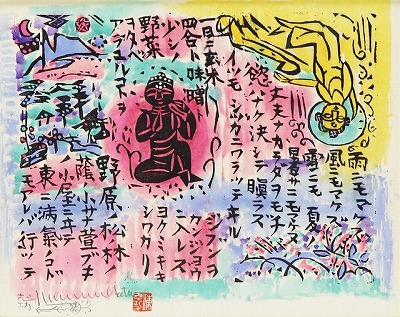 雨ニモマケズ
風ニモマケズ
雪ニモ夏ノ
暑サニモマケヌ
丈夫ナカラダヲモチ
慾ハナク決シテ瞋ラズ
イツモシヅカニワラッテヰル
一日ニ玄米
四合ト味噌ト
少シノ
野菜
ヲタベ
アラユルコトヲ
ジブンヲ
カンジョウ
ニ入レズ
ヨクミキキ
シワカリ
野原ノ松林ノ
蔭ノ小サナ萱ブキ
ノ小屋ニヰテ
東ニ病氣ノコド
モアレバ行ッテ